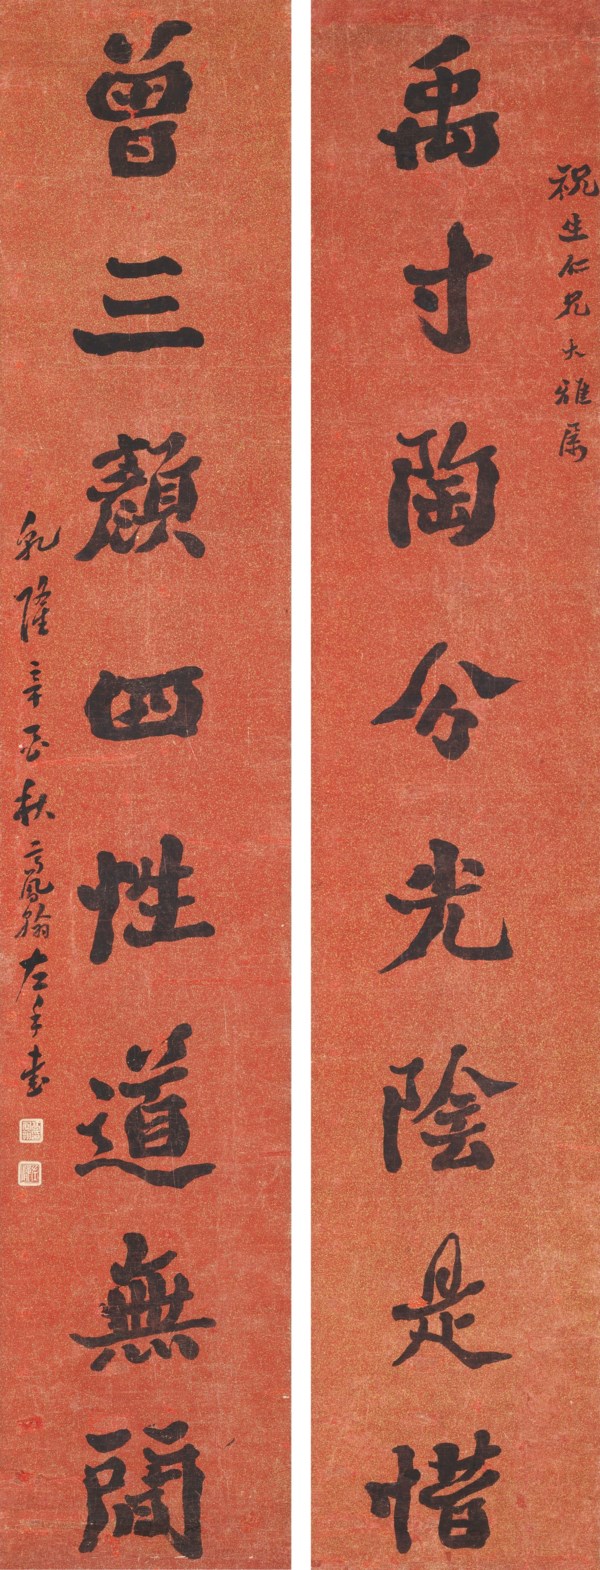 祝生仁兄大雅属
禹寸陶分光陰是惜
曾三顏四性道無閒
乾隆辛酉秋高鳳翰左手書